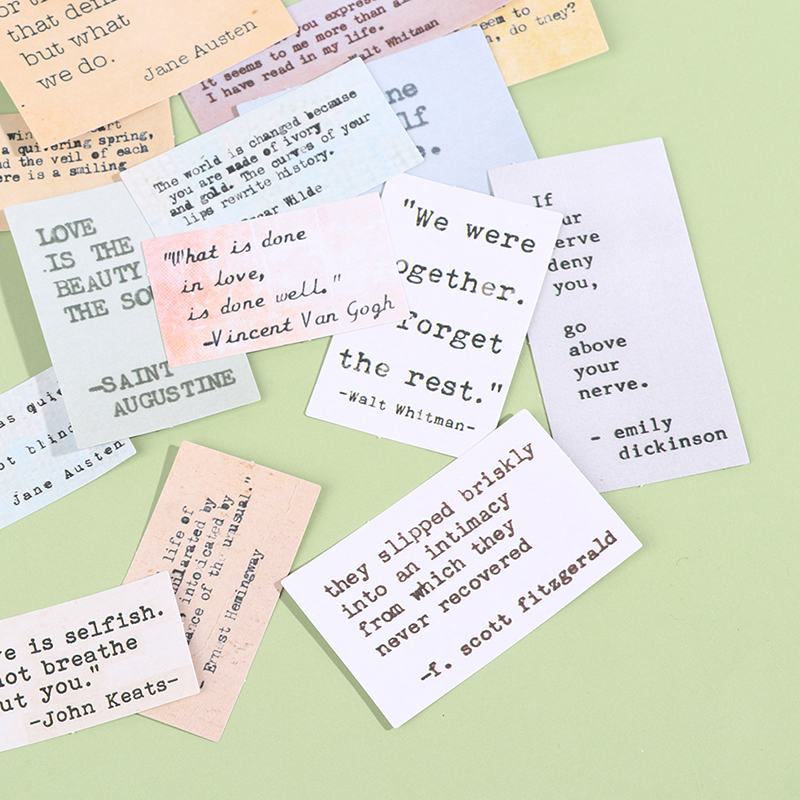 that
but what
we do.
Jane Austen
you
It seems to me more than a
I have read in my life.
Walt Whitman
seem to
do they?
a quivering spring,
the veil of each
is a smiling
The world is changed because
you are made of ivory
and gold. The curves of your
lips rewrite history.
Wilde
LOVE
IS THE
BEAUTY
THE
-SAINT
AUGUSTINE
"What is done
in love,
is done well."
-Vincent Van Gogh
"We were
ogether.
forget
the rest."
-Walt Whitman-
If
deny
you,
go
above
your
nerve.
- emily
dickinson
Jane Austen
life of
by
intoxicated by
unusual."
Ernest Hemingway
they slipped briskly
into an intimacy
from which they
never recovered
-f. scott fitzgerald
is selfish.
not breathe
you."
-John Keats-